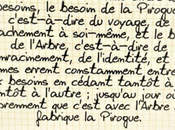 besoins, le besoin de la Pirogue
c'est-à-dire du voyage, de
achement à soi-même, et le b
de l'Arbre, c'est-à-dire de
nracinement, de l'identité, et
mes errent constamment entre
x besoins en cédant tantôt à
ntôt à l'autre ; jusqu'au jour o
prennent que c'est avec l'Arbre
fabrique la Pirogue.